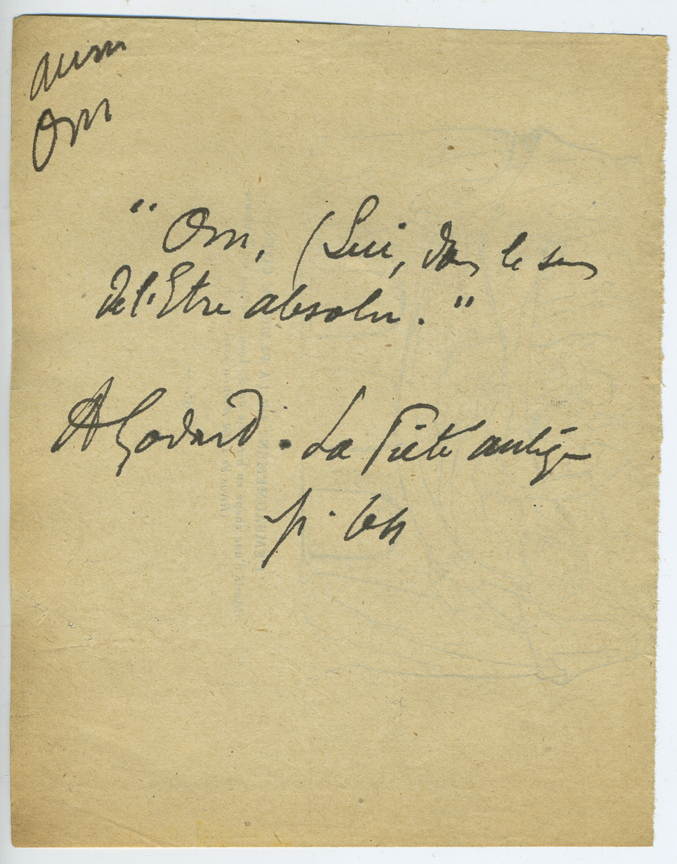 aum
Om
" Om, (Lui, dans le sens
de l'Etre absolu. "
A Godard. La Piété antique
p. 64